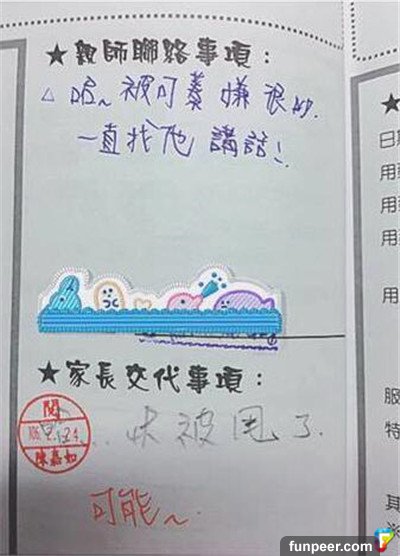 ★親師聯絡事項：
△ 哈~被可蓁嫌很吵.
一直找他講話!
★家長交代事項：
閱
陳嘉如
... 快被甩了.
可能~
★
日期
用藥
用
用
用
服
特
其
funpeer.com